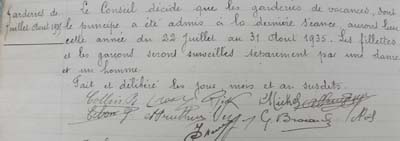 Garderies de
Juillet Août 1935
Le Conseil décide que les garderies de vacances, dont
le principe a été admis à la dernière séance, auront lieu
cette année du 22 juillet au 31 Août 1935. Les fillettes
et les garçons seront surveillés séparément par une dame
et un homme.
Fait et délibéré les jour, mois et an susdits.
Michel